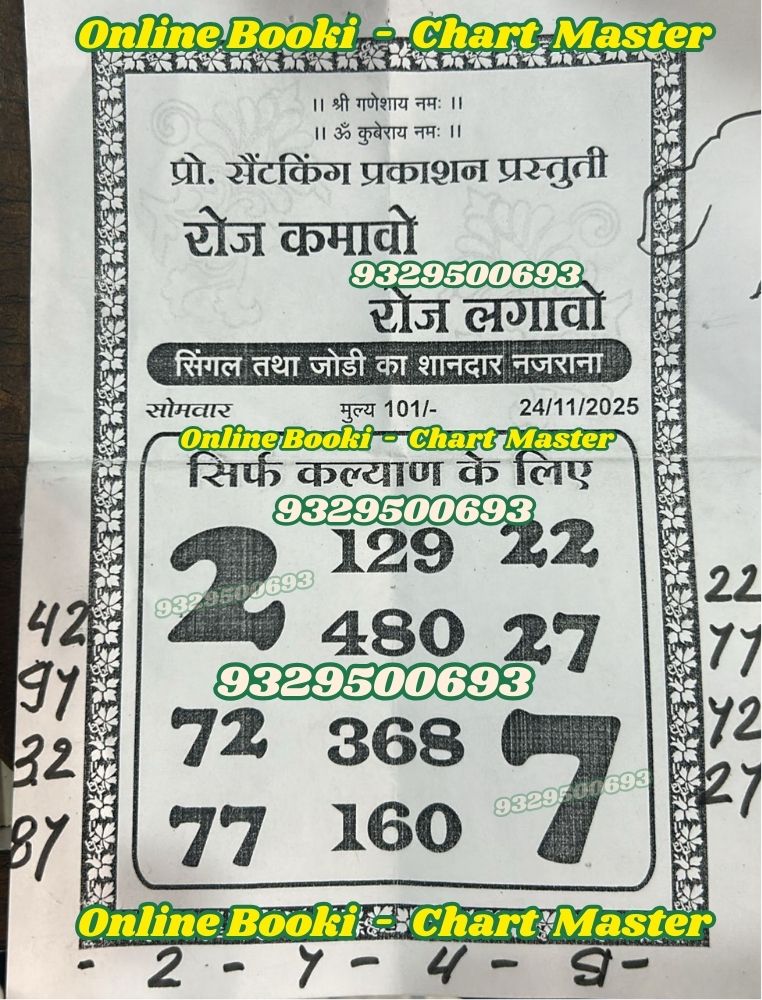 Online Booki - Chart Master
।। श्री गणेशाय नमः ।।
।। ॐ कुबेराय नमः ।।
प्रो. सैंटकिंग प्रकाशन प्रस्तुती
रोज कमावो
9329500693
रोज लगावो
सिंगल तथा जोडी का शानदार नजराना
सोमवार मुल्य 101/- 24/11/2025
Online Booki - Chart Master
सिर्फ कल्याण के लिए
9329500693
2 129 22
9329500693
42 480 27 22
9329500693
72 368 7
32
9329500693
77 160
Online Booki - Chart Master